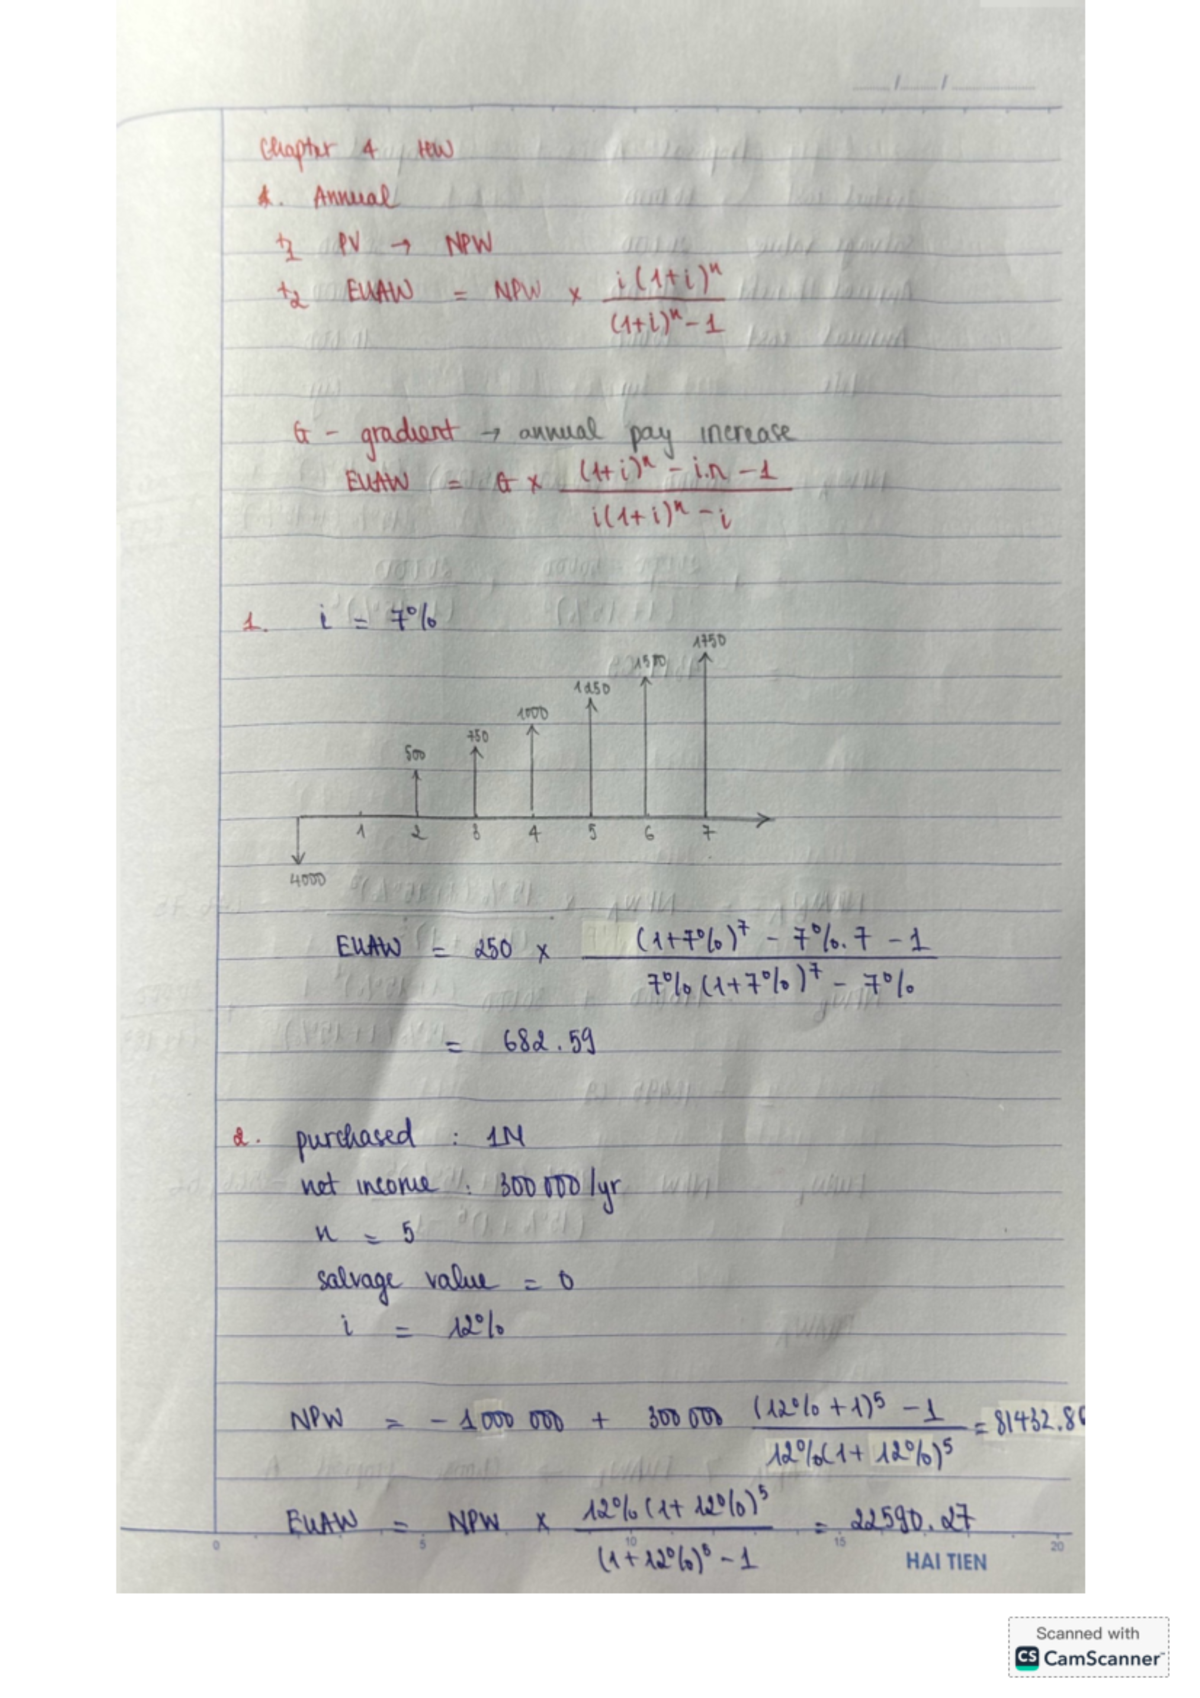 Chapter 4 HW
1. Annual
+1 PV → NPW
+2 EUAW = NPW × i(1+i)^n / (1+i)^n - 1
G - gradient → annual pay increase
EUAW = G × (1+i)^n - i.n - 1 / i(1+i)^n - i
1. i = 7%
500 750 1000 1250 1500 1750
1 2 3 4 5 6 7
4000
EUAW = 250 × (1+7%)^7 - 7%.7 - 1 / 7%(1+7%)^7 - 7%
= 682.59
2. purchased : 1M
net income : 300 000/yr
n = 5
salvage value = 0
i = 12%
NPW = - 1 000 000 + 300 000 (12%+1)^5 - 1 / 12%(1+12%)^5 = 81432.86
EUAW = NPW × 12%(1+12%)^5 / (1+12%)^5 - 1 = 22590.27
0 5 10 15 20
HAI TIEN
Scanned with
CS CamScanner